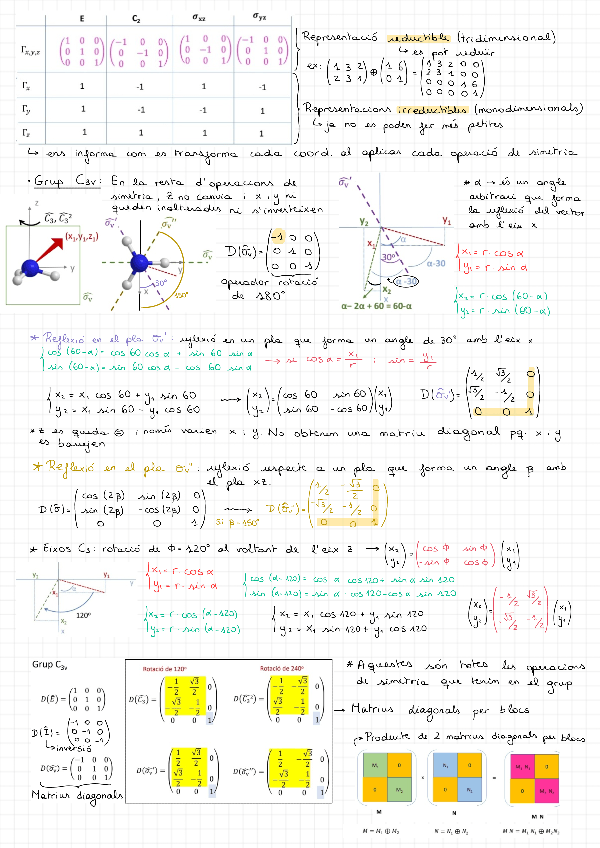 E C₂ σxz σyz
Γx,y,z (1 0 0 / 0 1 0 / 0 0 1) (-1 0 0 / 0 -1 0 / 0 0 1) (1 0 0 / 0 -1 0 / 0 0 1) (-1 0 0 / 0 1 0 / 0 0 1)
Γx 1 -1 1 -1
Γy 1 -1 -1 1
Γz 1 1 1 1
Representació reductible (tridimensional)
↳ es pot reduir
ex: (1 3 2 / 2 3 1) ⊕ (1 6 / 0 1) = (1 3 2 0 0 / 2 3 1 0 0 / 0 0 0 1 6 / 0 0 0 0 1)
Representacions irreductibles (monodimensionals)
↳ ja no es poden fer més petites
↳ ens informa com es transforma cada coord. al aplicar cada operació de simetria
· Grup C3v: En la resta d'operacions de
simetria, z no canvia i x, y ni
queden inalterades ni s'inverteixen
z
C₃, C₃²
(x₁,y₁,z₁)
y
x
σv
σv'
σv''
y
x
30°
150°
D(σv) = (-1 0 0 / 0 1 0 / 0 0 1)
operador rotació
de 180°
σv'
y₂ y₁
x₁ α
30° α-30
x₂ α-30
x
α-2α+60 = 60-α
* α → és un angle
arbitrari que forma
la reflexió del vector
amb l'eix x
x₁ = r · cos α
y₁ = r · sin α
x₂ = r · cos (60-α)
y₂ = r · sin (60-α)
* Reflexió en el pla σv': reflexió en un pla que forma un angle de 30° amb l'eix x
cos (60-α) = cos 60 cos α + sin 60 sin α
sin (60-α) = sin 60 cos α - cos 60 sin α
→ si cos α = x₁/r ; sin = y₁/r
x₂ = x₁ cos 60 + y₁ sin 60
y₂ = x₁ sin 60 - y₁ cos 60
→ (x₂ / y₂) = (cos 60 sin 60 / sin 60 -cos 60)(x₁ / y₁)
D(σv') = (1/2 √3/2 0 / √3/2 -1/2 0 / 0 0 1)
* z es queda i només varien x i y No obtenim una matriu diagonal pq. x i y
es barregen
* Reflexió en el pla σv'': reflexió respecte a un pla que forma un angle β amb
el pla xz.
D(σ) = (cos (2β) sin (2β) 0 / sin (2β) -cos (2β) 0 / 0 0 1)
Si β = 150°
D(σv'') = (1/2 -√3/2 0 / -√3/2 -1/2 0 / 0 0 1)
* Eixos C₃: rotació de Φ = 120° al voltant de l'eix z → (x₂ / y₂) = (cos Φ sin Φ / -sin Φ cos Φ)(x₁ / y₁)
y₂ y₁
x₁ α
120°
x₂
x
x₁ = r · cos α
y₁ = r · sin α
cos (α-120) = cos α cos 120 + sin α sin 120
sin (α-120) = sin α · cos 120 - cos α sin 120
x₂ = r · cos (α-120)
y₂ = r · sin (α-120)
x₂ = x₁ cos 120 + y₁ sin 120
y₂ = -x₁ sin 120 + y₁ cos 120
(x₂ / y₂) = (-1/2 √3/2 / -√3/2 -1/2)(x₁ / y₁)
Grup C3v
D(E) = (1 0 0 / 0 1 0 / 0 0 1)
D(I) = (-1 0 0 / 0 -1 0 / 0 0 -1)
↳ inversió
D(σv) = (-1 0 0 / 0 1 0 / 0 0 1)
Matrius diagonals
Rotació de 120° Rotació de 240°
D(C₃) = (-1/2 √3/2 0 / -√3/2 -1/2 0 / 0 0 1)
D(C₃²) = (-1/2 -√3/2 0 / √3/2 -1/2 0 / 0 0 1)
D(σv') = (1/2 √3/2 0 / √3/2 -1/2 0 / 0 0 1)
D(σv'') = (1/2 -√3/2 0 / -√3/2 -1/2 0 / 0 0 1)
* Aquestes són totes les operacions
de simetria que tenim en el grup
→ Matrius diagonals per blocs
↱ Producte de 2 matrius diagonals per blocs
M₁ 0 N₁ 0 M₁ N₁ 0
x =
0 M₂ 0 N₂ 0 M₂ N₂
M N M N
M = M₁ ⊕ M₂ N = N₁ ⊕ N₂ M N = M₁ N₁ ⊕ M₂N₂